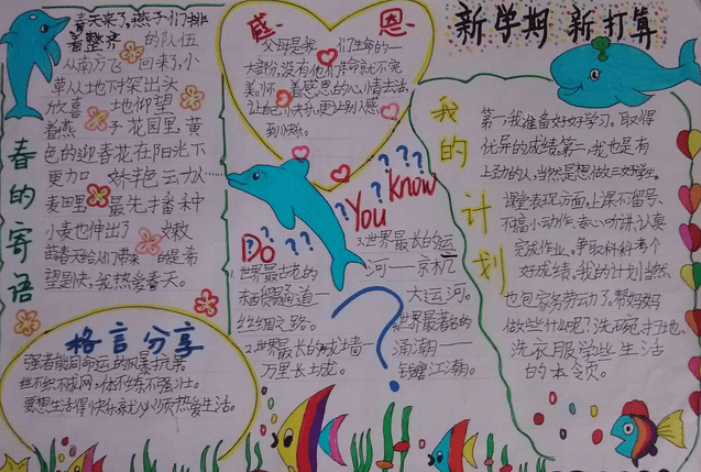 新学期 新打算
春的寄语
春天来了,燕子们排
着整齐的队伍
从南方飞回来了,小
草从土地下探出头
欣喜地仰望
着燕子花园里,黄
色的迎春花在阳光下
更加娇艳
麦田里最先播种
小麦也伸出了嫩
苗春天给人们带来的是希
望是快,我热爱春天。
感恩
父母是我们生命的一
大部分,没有他们生命就不完
美。怀着感恩的心情去活,
让自己快乐,更让别人感
到快乐。
Do You Know
1.世界最古老的
东西交通通道一
丝绸之路。
2.世界最长的城墙一
万里长城。
3.世界最长的运
河——京杭
大运河。
世界最著名的
涌潮——
钱塘江潮。
格言分享
强者能同命运的风暴抗衡
丝不织不成网,体不练不强壮。
要想生活得快乐就必须热爱生活。
我的计划
第一,我准备好好学习。取得
优异的成绩,第二,我也是有
上劲的人,当然是想做三好学生。
课堂表现方面,上课不留号、
不搞小动作、专心听讲,认真
完成作业。争取科科考个
好成绩。我的计划当然
也包家务劳动了。帮妈妈
做些什么呢?洗碗、扫地、
洗衣服学些生活
的本领。